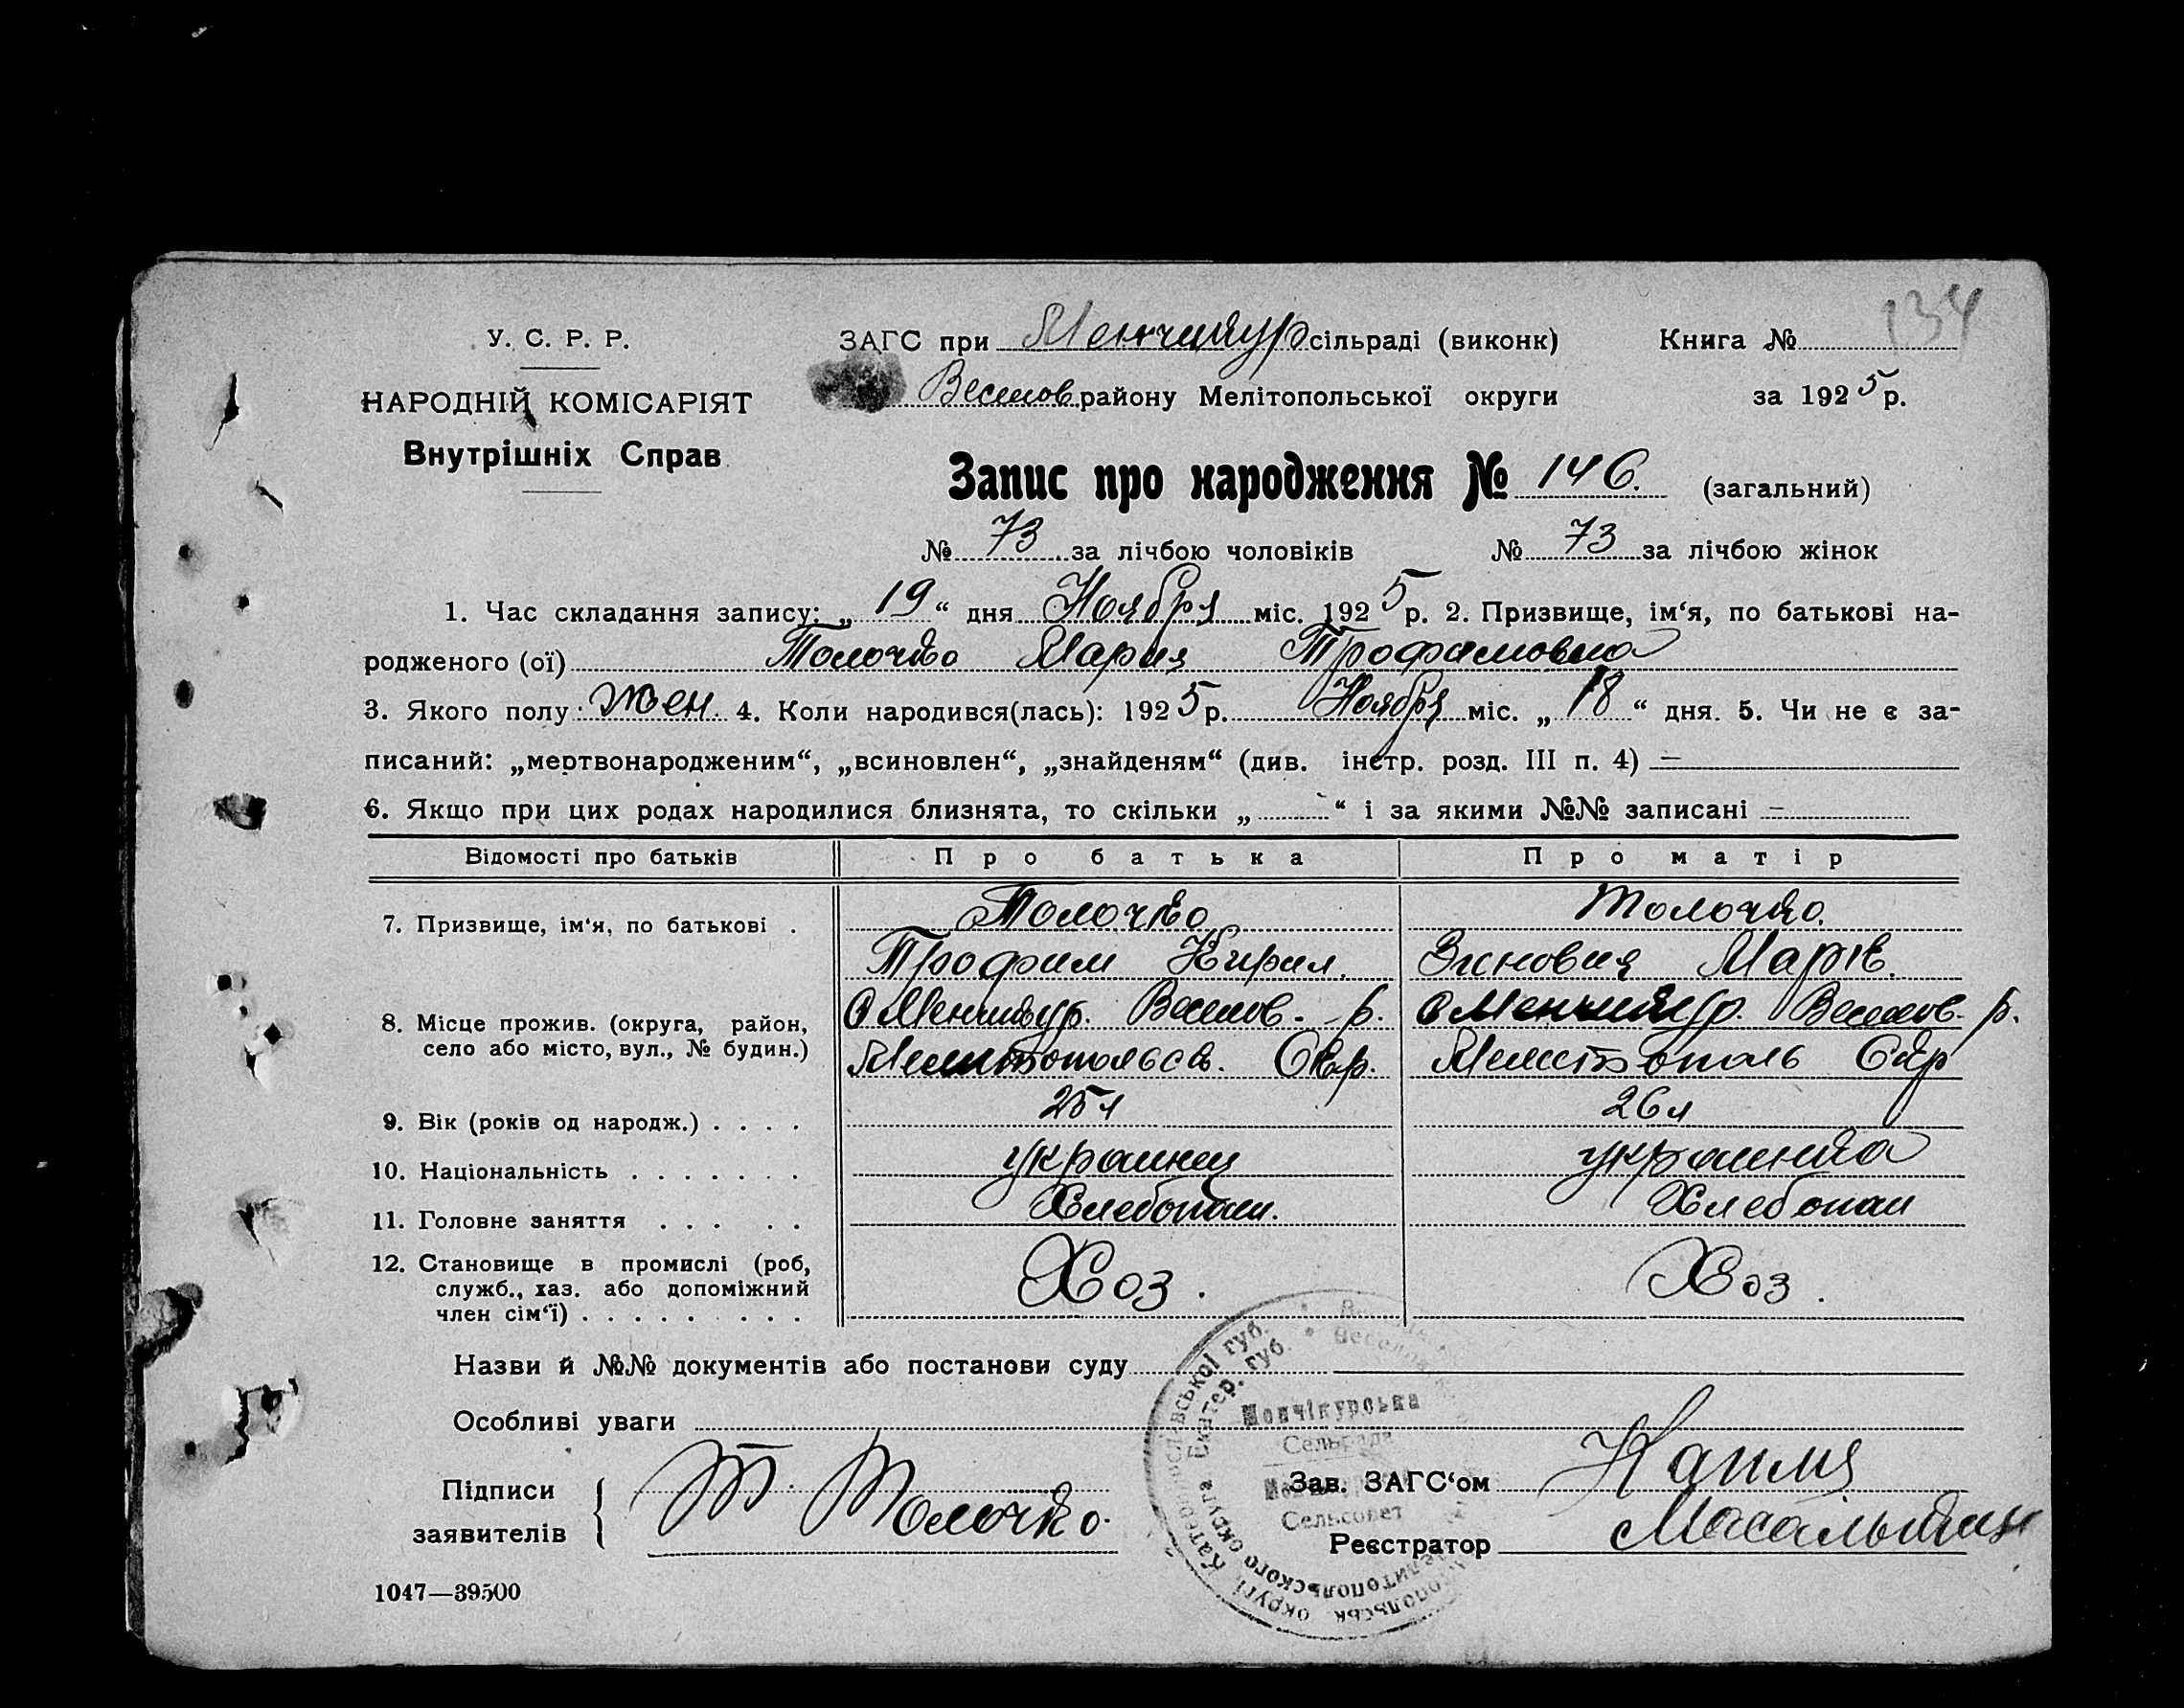 134
У. С. Р. Р.
ЗАГС при Менчикур сільраді (виконк)
Книга №
НАРОДНІЙ КОМІСАРІЯТ
Веселов. району Мелітопольської округи
за 1925 р.
Внутрішніх Справ
Запис про народження № 146. (загальний)
№ 73 за лічбою чоловіків № 73 за лічбою жінок
1. Час складання запису: „ 19 “ дня Ноября міс. 1925 р. 2. Призвище, ім‘я, по батькові на-
родженого (ої) Толочко Мария Трофимовна
3. Якого полу: жен. 4. Коли народився(лась): 1925 р. Ноября міс. „ 18 “ дня. 5. Чи не є за-
писаний: „мертвонародженим“, „всиновлен“, „знайденям“ (див. інстр. розд. III п. 4) —
6. Якщо при цих родах народилися близнята, то скільки „ “ і за якими №№ записані —
Відомості про батьків Про батька Про матір
7. Призвище, ім‘я, по батькові . Толочко Толочко.
Трофим Кирил. Зиновия Марк.
8. Місце прожив. (округа, район, село або місто, вул., № будин.) с Менчикур. Веселов. р. с Менчикур. Веселов. р.
Мелитопольск. Окр. Мелитополь Окр
9. Вік (років од народж.) . . . . 25 л 26 л
10. Національність . . . . . . . украинец украинка
11. Головне заняття . . . . . Хлебопаш. Хлебопаш
12. Становище в промислі (роб, служб., хаз. або допоміжний член сім‘ї) . . . . . . . . Хоз. Хоз.
Назви й №№ документів або постанови суду
Особливі уваги
Підписи заявителів Т. Толочко.
Зав. ЗАГС‘ом
Реєстратор
Менчікурська
Сельрада
Сельсовет
1047—39500